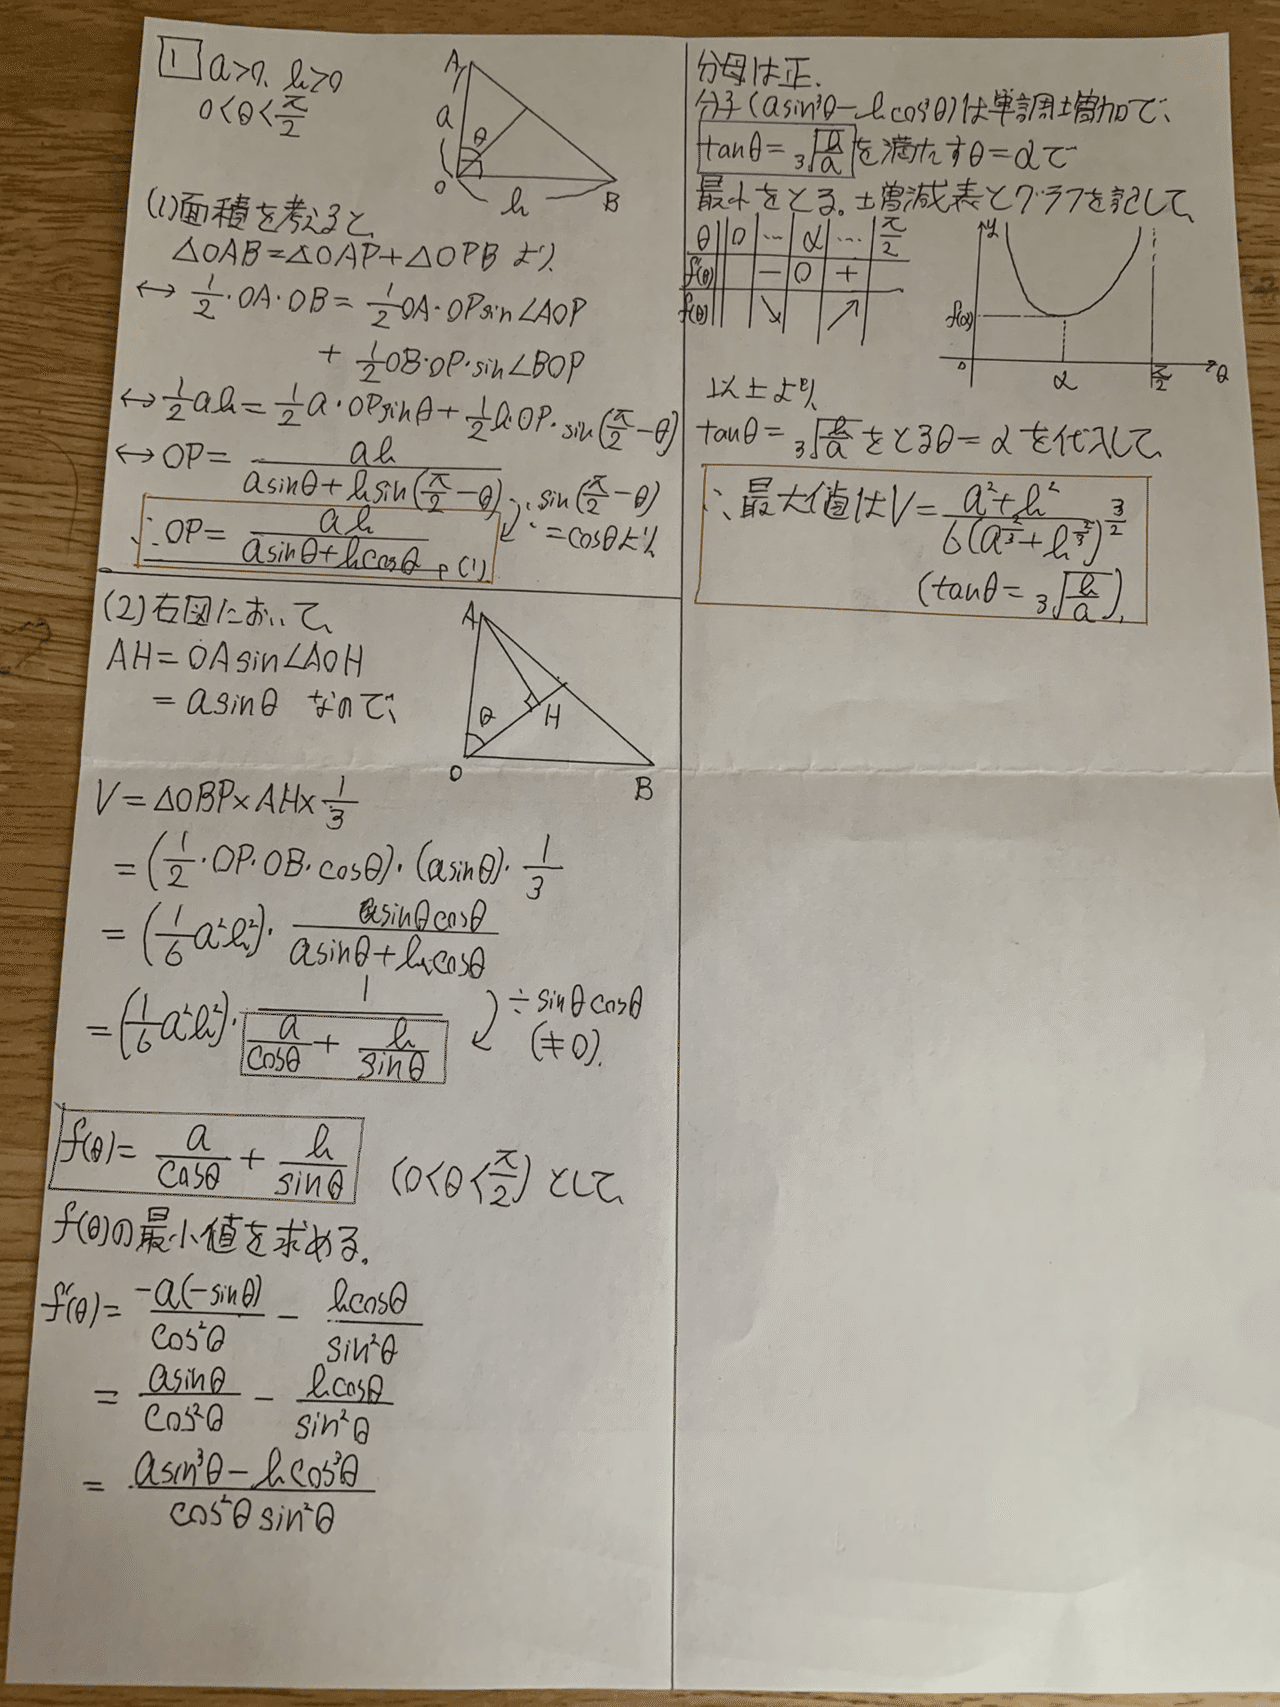 1 a>0, b>0
0<θ<π/2
A
a
θ
O
b
B
(1)面積を考えると、
△OAB=△OAP+△OPB より、
↔ 1/2・OA・OB = 1/2 OA・OP sin∠AOP
+ 1/2 OB・OP・sin∠BOP
↔ 1/2 ab = 1/2 a・OP sinθ + 1/2 b・OP・sin(π/2-θ)
↔ OP = ab/(a sinθ + b sin(π/2-θ))
∵ sin(π/2-θ)
= cosθより
∴ OP = ab/(a sinθ + b cosθ) (1)
(2)右図において、
AH = OA sin∠AOH
= a sinθ なので、
A
θ
H
O
B
V = △OBP×AH×1/3
= (1/2・OP・OB・cosθ)・(a sinθ)・1/3
= (1/6 a²b²)・sinθcosθ/(a sinθ + b cosθ)
= (1/6 a²b²)・1/(a/cosθ + b/sinθ)
÷sinθcosθ
(≠0).
f(θ) = a/cosθ + b/sinθ (0<θ<π/2) として、
f(θ)の最小値を求める.
f'(θ) = -a(-sinθ)/cos²θ - b cosθ/sin²θ
= a sinθ/cos²θ - b cosθ/sin²θ
= (a sin³θ - b cos³θ)/(cos²θ sin²θ)
分母は正.
分子(a sin³θ - b cos³θ)は単調増加で、
tanθ = ³√(b/a) を満たすθ=αで
最小をとる. 増減表とグラフを記して、
θ 0 … α … π/2
f'(θ) - 0 +
f(θ) ↘ ↗
y
f(α)
0
α
π/2
θ
以上より、
tanθ = ³√(b/a) をとるθ=αを代入して、
∴ 最大値はV = (a²+b²)/(6(a^(2/3)+b^(2/3))^(3/2))
(tanθ = ³√(b/a)).